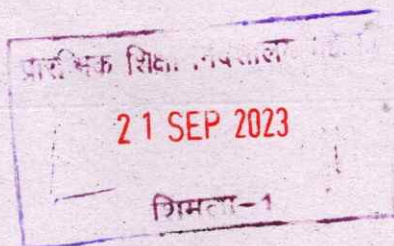 प्रारम्भिक शिक्षा
21 SEP 2023
शिमला-1